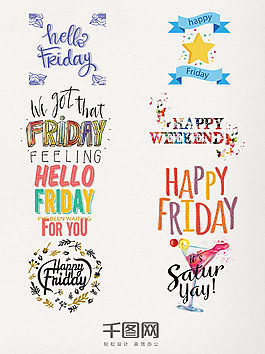 hello
Friday
happy
Friday
We got that
FRIDAY
FEELING
HAPPY
WEEKEND!
HELLO
FRIDAY
I'VE BEEN WAITING
FOR YOU
HAPPY
FRIDAY
Happy
Friday
it's
Satur
Yay!
千图网
轻松设计 高效办公